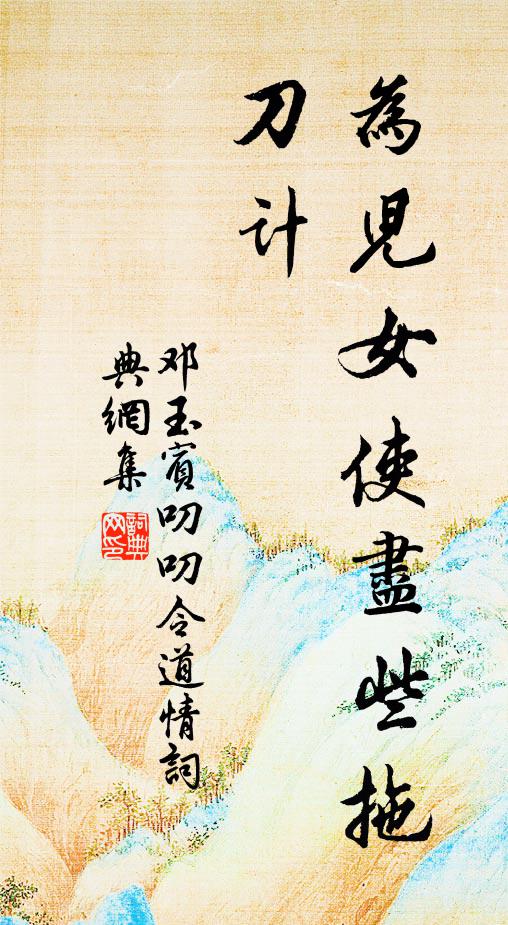 為兒女使盡些拖
刀计
邓玉賓叨叨令道情詞
典網集
詞典
网印